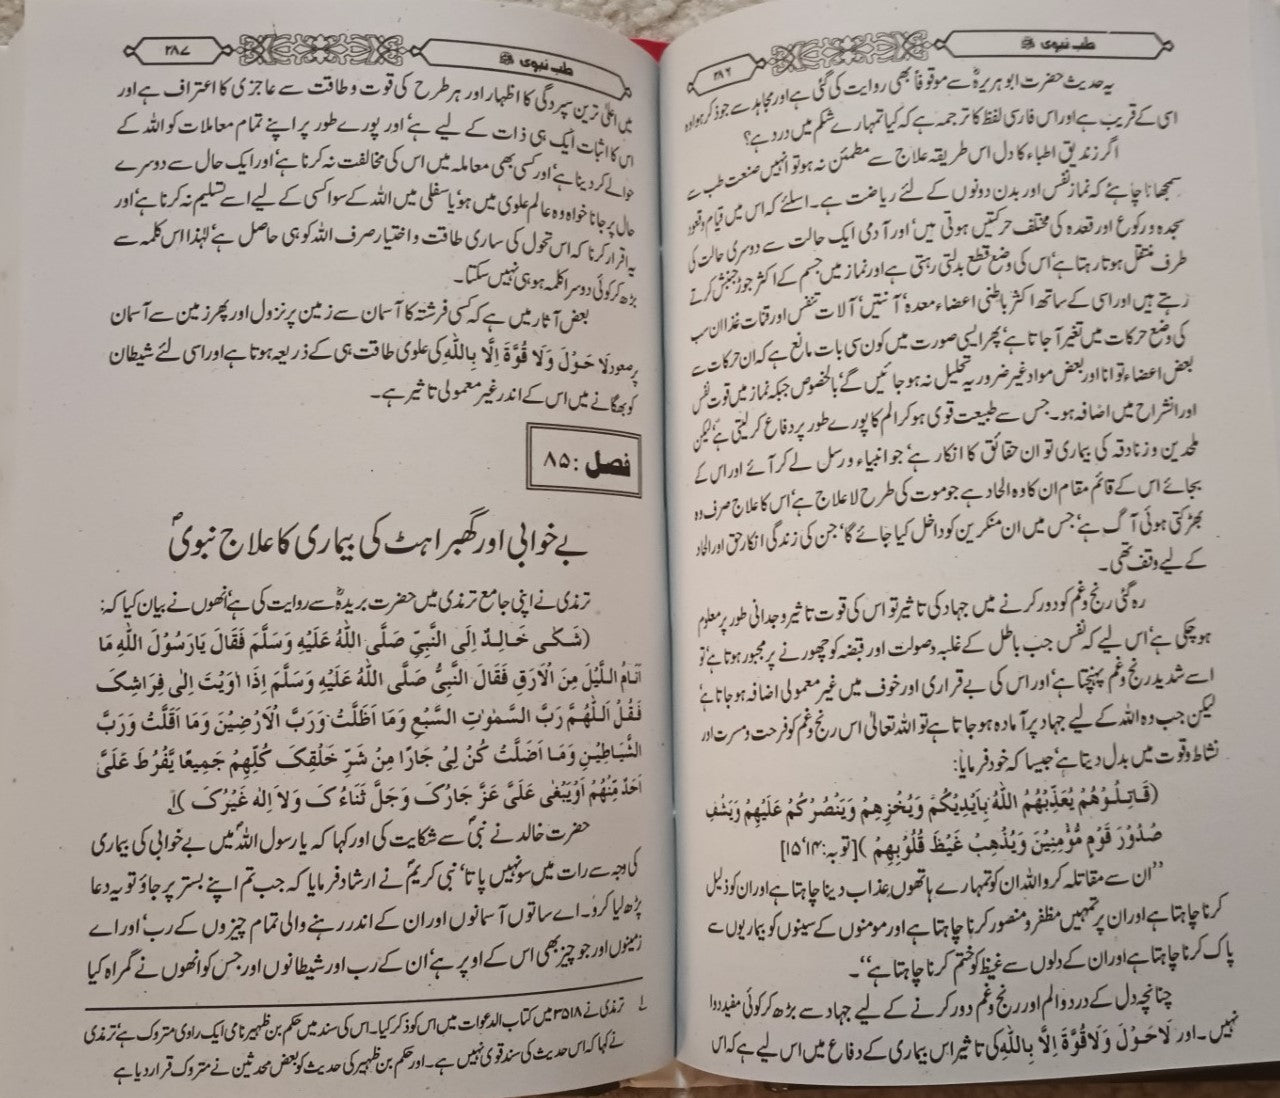 طب نبوی ﷺ
۲۸۶
یہ حدیث حضرت ابوہریرہؓ سے موقوفاً بھی روایت کی گئی ہے اور مجاہد سے جو ذکر ہوا وہ
اسی کے قریب ہے اور اس فارسی لفظ کا ترجمہ ہے کہ کیا تمہارے شکم میں درد ہے؟
اگر زندیق اطباء کا دل اس طریقہ علاج سے مطمئن نہ ہو تو انہیں صنعت طب سے
سمجھانا چاہئے کہ نماز نفس اور بدن دونوں کے لئے ریاضت ہے۔ اسلئے کہ اس میں قیام و قعود
سجدہ و رکوع اور قعدہ کی مختلف حرکتیں ہوتی ہیں' اور آدمی ایک حالت سے دوسری حالت کی
طرف منتقل ہوتا رہتا ہے' اس کی وضع قطع بدلتی رہتی ہے اور نماز میں جسم کے اکثر جوڑ جنبش کرتے
رہتے ہیں اور اسی کے ساتھ اکثر باطنی اعضاء معدہ' آنتیں' آلات تنفس اور قنات غذا ان سب
کی وضع حرکات میں تغیر آ جاتا ہے' پھر ایسی صورت میں کون سی بات مانع ہے کہ ان حرکات سے
بعض اعضاء توانا اور بعض مواد غیر ضروریہ تحلیل نہ ہو جائیں گے' بالخصوص جبکہ نماز میں قوت نفس
اور انشراح میں اضافہ ہو۔ جس سے طبیعت قوی ہو کر الم کا پورے طور پر دفاع کر لیتی ہے' لیکن
ملحدین و زنادقہ کی بیماری تو ان حقائق کا انکار ہے' جو انبیاء و رسل لے کر آئے اور اس کے
بجائے اس کے قائم مقام ان کا وہ الحاد ہے جو موت کی طرح لاعلاج ہے' اس کا علاج صرف وہ
بھڑکتی ہوئی آگ ہے' جس میں ان منکرین کو داخل کیا جائے گا' جن کی زندگی انکار حق اور الحاد
کے لیے وقف تھی۔
رہ گئی رنج و غم کو دور کرنے میں جہاد کی تاثیر تو اس کی قوت تاثیر وجدانی طور پر معلوم
ہو چکی ہے' اس لیے کہ نفس جب باطل کے غلبہ و صولت اور قبضہ کو چھوڑنے پر مجبور ہوتا ہے' تو
اسے شدید رنج و غم پہنچتا ہے' اور اس کی بے قراری اور خوف میں غیر معمولی اضافہ ہو جاتا ہے
لیکن جب وہ اللہ کے لیے جہاد پر آمادہ ہو جاتا ہے تو اللہ تعالیٰ اس رنج و غم کو فرحت و مسرت اور
نشاط و قوت میں بدل دیتا ہے' جیسا کہ خود فرمایا:
(قَاتِلُوْهُمْ يُعَذِّبْهُمُ اللّٰهُ بِاَيْدِيْكُمْ وَيُخْزِهِمْ وَيَنْصُرْكُمْ عَلَيْهِمْ وَيَشْفِ
صُدُوْرَ قَوْمٍ مُّؤْمِنِيْنَ وَيُذْهِبْ غَيْظَ قُلُوْبِهِمْ )[توبہ:۱۴'۱۵]
"ان سے مقاتلہ کرو اللہ ان کو تمہارے ہاتھوں عذاب دینا چاہتا ہے اور ان کو ذلیل
کرنا چاہتا ہے اور ان پر تمہیں مظفر و منصور کرنا چاہتا ہے اور مومنوں کے سینوں کو بیماریوں سے
پاک کرنا چاہتا ہے اور ان کے دلوں سے غیظ کو ختم کرنا چاہتا ہے"۔
چنانچہ دل کے درد و الم اور رنج و غم دور کرنے کے لیے جہاد سے بڑھ کر کوئی مفید دوا
نہیں۔ اور لَا حَوْلَ وَلَا قُوَّةَ اِلَّا بِاللّٰهِ کی تاثیر اس بیماری کے دفاع میں اس لیے ہے کہ اس
طب نبوی ﷺ
۲۸۷
میں اعلیٰ ترین سپردگی کا اظہار اور ہر طرح کی قوت و طاقت سے عاجزی کا اعتراف ہے اور
اس کا اثبات ایک ہی ذات کے لیے ہے' اور پورے طور پر اپنے تمام معاملات کو اللہ کے
حوالے کر دینا ہے' اور کسی بھی معاملہ میں اس کی مخالفت نہ کرنا ہے' اور ایک حال سے دوسرے
حال پر جانا خواہ وہ عالم علوی میں ہو' یا سفلی میں اللہ کے سوا کسی کے لیے اسے تسلیم نہ کرنا ہے' اور
یہ اقرار کرنا کہ اس تحول کی ساری طاقت و اختیار صرف اللہ کو ہی حاصل ہے' لہٰذا اس کلمہ سے
بڑھ کر کوئی دوسرا کلمہ ہو ہی نہیں سکتا۔
بعض آثار میں ہے کہ کسی فرشتہ کا آسمان سے زمین پر نزول اور پھر زمین سے آسمان
پر صعود لَا حَوْلَ وَلَا قُوَّةَ اِلَّا بِاللّٰهِ کی علوی طاقت ہی کے ذریعہ ہوتا ہے اور اسی لئے شیطان
کو بھگانے میں اس کے اندر غیر معمولی تاثیر ہے۔
فصل : ۸۵
بے خوابی اور گھبراہٹ کی بیماری کا علاج نبویؐ
ترمذی نے اپنی جامع ترمذی میں حضرت بریدہؓ سے روایت کی ہے' انھوں نے بیان کیا کہ:
(شَكٰى خَالِدٌ اِلَى النَّبِيِّ صَلَّى اللّٰهُ عَلَيْهِ وَسَلَّمَ فَقَالَ يَارَسُوْلَ اللّٰهِ مَا
اَنَامُ اللَّيْلَ مِنَ الْاَرَقِ فَقَالَ النَّبِيُّ صَلَّى اللّٰهُ عَلَيْهِ وَسَلَّمَ اِذَا اَوَيْتَ اِلٰى فِرَاشِكَ
فَقُلْ اَللّٰهُمَّ رَبَّ السَّمٰوٰتِ السَّبْعِ وَمَا اَظَلَّتْ وَرَبَّ الْاَرْضِيْنَ وَمَا اَقَلَّتْ وَرَبَّ
الشَّيَاطِيْنِ وَمَا اَضَلَّتْ كُنْ لِيْ جَارًا مِنْ شَرِّ خَلْقِكَ كُلِّهِمْ جَمِيْعًا يَّفْرُطَ عَلَيَّ
اَحَدٌ مِّنْهُمْ اَوْيَبْغٰى عَلَيَّ عَزَّ جَارُكَ وَجَلَّ ثَنَاءُكَ وَلَا اِلٰهَ غَيْرُكَ )ۂ
حضرت خالد نے نبیؐ سے شکایت کی اور کہا کہ یا رسول اللہؐ میں بے خوابی کی بیماری
کی وجہ سے رات میں سو نہیں پاتا' نبی کریمؐ نے ارشاد فرمایا کہ جب تم اپنے بستر پر جاؤ تو یہ دعا
پڑھ لیا کرو۔ اے ساتوں آسمانوں اور ان کے اندر رہنے والی تمام چیزوں کے رب' اور اے
زمینوں اور جو چیز بھی اس کے اوپر ہے' ان کے رب اور شیطانوں اور جس کو انھوں نے گمراہ کیا
ترمذی نے ۳۵۱۸ میں کتاب الدعوات میں اس کو ذکر کیا۔ اس کی سند میں حکم بن ظہیر نامی ایک راوی متروک ہے' ترمذی
نے کہا کہ اس حدیث کی سند قوی نہیں ہے۔ اور حکم بن ظہیر کی حدیث کو بعض محدثین نے متروک قرار دیا ہے